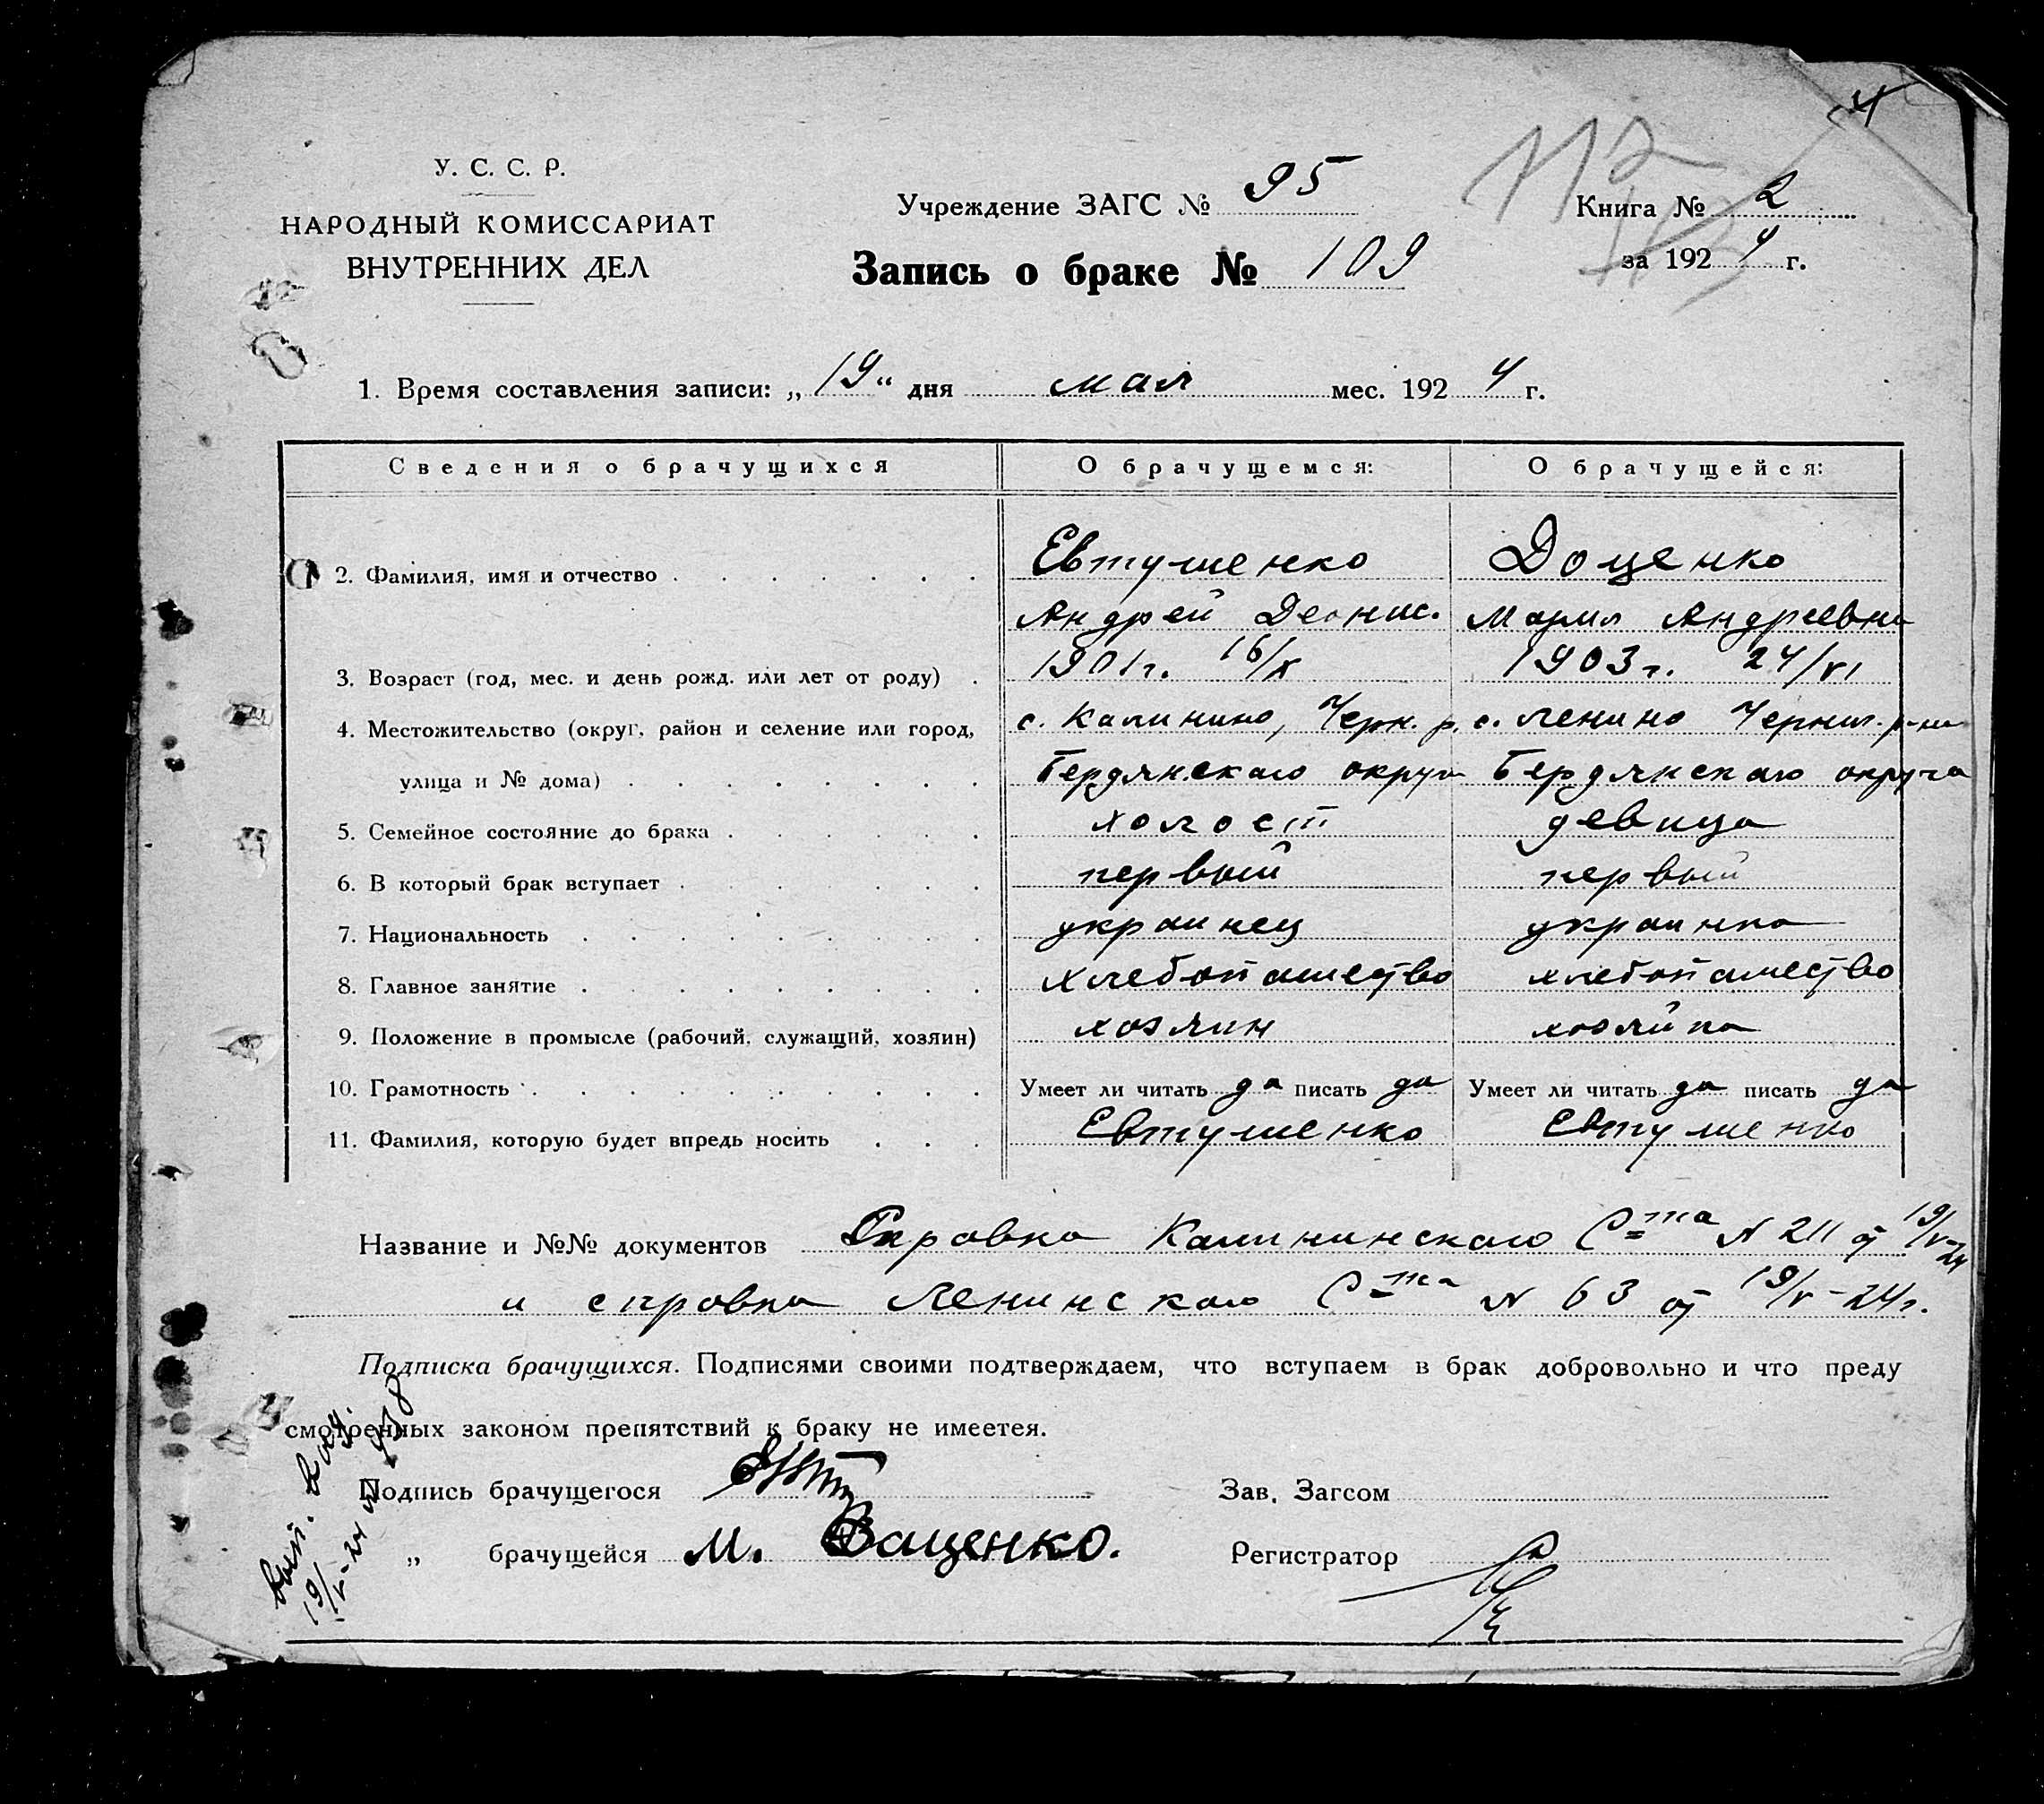 4
112
У. С. С. Р.
НАРОДНЫЙ КОМИССАРИАТ
ВНУТРЕННИХ ДЕЛ
Учреждение ЗАГС № 95
Книга № 2
Запись о браке № 109
за 1924 г.
1. Время составления записи: „19“ дня мая мес. 1924 г.
Сведения о брачущихся О брачущемся: О брачущейся:
2. Фамилия, имя и отчество . . . . . . . Евтушенко Доценко
Андрей Деонис. Мария Андреевна
3. Возраст (год, мес. и день рожд. или лет от роду) . 1901г. 16/X 1903г. 24/VI
4. Местожительство (округ, район и селение или город, с. Калинино, Черн. р. с. Ленино Черниг. р-на
улица и № дома) . . . . . . . . Бердянского округа Бердянского округа
5. Семейное состояние до брака . . . . . . холост девица
6. В который брак вступает . . . . . . первый первый
7. Национальность . . . . . . . . . украинец украинка
8. Главное занятие . . . . . . . . . хлебопашество хлебопашество
9. Положение в промысле (рабочий, служащий, хозяин) хозяин хозяйка
10. Грамотность . . . . . . . . . . Умеет ли читать да писать да Умеет ли читать да писать да
11. Фамилия, которую будет впредь носить . . . Евтушенко Евтушенко
Название и №№ документов Справка Калининского С=та N 211 от 19/V-24
и справка Ленинского С=та N 63 от 19/V-24г.
Подписка брачущихся. Подписями своими подтверждаем, что вступаем в брак добровольно и что преду
смотренных законом препятствий к браку не имеетея.
Подпись брачущегося Зав. Загсом
„ брачущейся М. Даценко. Регистратор
19/V-24